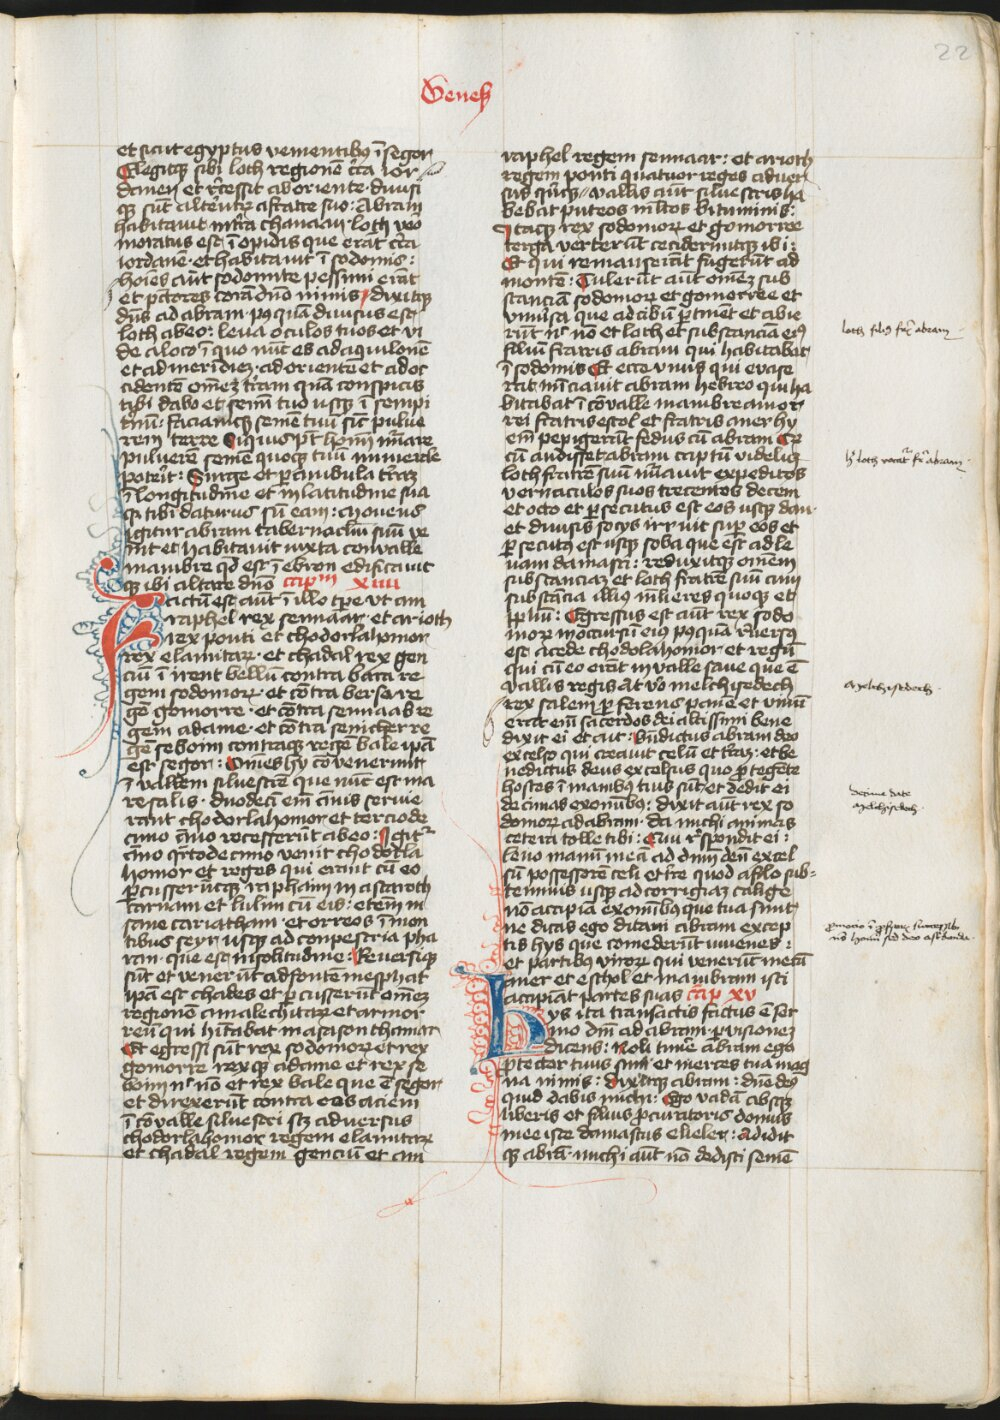 22
Genesis
et sicut egyptus venientibus ī segor
Elegitqꝫ sibi loth regionē circa ior
danem et rᷣcessit ab oriente · diuisi
qꝫ sūt alterutrꝫ a fratre suo : Abram
habitauit in terra chanaan · loth vͦo
moratus est ī opidis que erāt circa
iordanē · et habitauit ī sodomis :
hoīes aūt sodomite pessimi erāt
et pctōres corā dn̄o nimis / dixitqꝫ
dn̄s ad abram · pꝰquā diuisus est
loth ab eo : leua oculos tuos et vi
de a loco ī quo nūc es ad aquilonē
et ad meridiē · ad orientē et ad oc
cidentē omēꝫ trām quā conspicis
tibi dabo et semī tuo usqꝫ ī sempi
tnū : faciamqꝫ semē tuū sicut pulue
rem terre Si quis pōt hoīm nūare
puluerē semē quoqꝫ tuū numerare
poterit : Surge et ꝑambula trāꝫ
ī longitudine et in latitudine sua
qꝫ tibi daturus sū eam : mouens
igitur abram tabernaclm̄ suū ve
nīt et habitauit iuxta conualle
mambre qd̄ est ī ebron edificauit
qꝫ ibi altare dn̄o capᵐ xiiii
Factū est aūt ī illo tpe vt am
raphel rex sennaar · et arioth
rex ponti et chodorlahomor
rex elamitarꝫ · et thadal rex gen
ciū ī irent bellū contra bara re
gem sodomorꝫ · et cōtra bersa re
gē gomorre · et cōtra sennaab re
gem adame · et cōtra semeber re
gē seboim contraqꝫ regē bale ip̄a
est segor : Omēs hy cōuenerūt
ī vallem siluestrē que nūc est ma
re salis · duodecī em̄ ānis seruie
rant chodorlahomor et terciode
cimo āno recesserūt ab eo : Igitᷣ
āno qrtodecimo venit chodorla
homor et reges qui erant cū eo
ꝑcusserūtqꝫ raphaim in astaroth
carnaim et lulim cū eis · et em̄ in
saue cariathaim · et correos ī mon
tibus seyr usqꝫ ad conpestria pha
ran · que est in solitudine : Reuersiqꝫ
sūt et venerūt ad fontē mesphat
ip̄a est chades et ꝑcusserūt omēꝫ
regionē amalechitarꝫ et amor
reū qui hītabat in asason thamar
Et egressi sūt rex sodomorꝫ et rex
gomorre rex qꝫ adame et rex se
boim nᶜ nō et rex bale que ē segor
et direxerūt contra eos aciem
ī cōualle siluestri scꝫ aduersus
chodorlahomor regem elamitarꝫ
et thadal regem genciū et am
raphel regem sennaar : et arioth
regem ponti quatuor reges aduer
sus qnqꝫ / vallis aūt siluestris ha
bebat puteos mltos bituminis :
Itaqꝫ rex sodomorꝫ et gomorre
terga verterūt cecideruntqꝫ ibi :
Et qui remanserāt fugerūt ad
montē : Tulerūt aūt omēꝫ sub
stanciā sodomorꝫ et gomorree et
vniūsa que ad cibū ꝑtinēt et abie
rūt nᶜ nō et loth et substanciā eiꝰ
filiū fratris abram qui habitabat
ī sodomis Et ecce vnus qui euase
rat nūciauit abram hebreo qui ha
bitabat ī cōualle mambre amor
rei fratris escol et fratris aner hy
em̄ pepigerūt fedus cū abram Qꝫ
cū audisset abram captū videlicꝫ
loth fratrē suū nūauit expeditos
vernaculos suos trecentos decem
et octo et ꝑsecutus est eos usqꝫ dan·
et diuisis socys irruit suꝑ eos et
ꝑsecutus est usqꝫ soba que est ad le
uam damasci : reduxitqꝫ omēm
substanciaꝫ et loth fratrē suū cum
substācia illiꝰ mlieres quoqꝫ et
pplm̄ : Egressus est aūt rex sodo
morꝫ in occursū eiꝰ pꝰquā reuersꝰ
est a cede chodolahomor et regū
qui cū eo erāt in valle saue que ē
vallis regis At vͦo melchisedech
rex salem proferens panē et vinū
erat em̄ sacerdos dei altissimi bene
dixit ei et ait : bn̄dictus abram deo
excelso qui creauit celū et terraꝫ · et be
nedictus deus excelsus quo ꝓtegēte
hostes ī manibus tuis sūt et dedit ei
decimas ex omībus : dixit aūt rex so
domorꝫ ad abram · da michi animas
cetera tolle tibi : Qui rᷣspondit ei :
leuo manū meā ad dn̄m deū excel
sū possessorē celi et tre quod a filo sub-
temīnis usqꝫ ad corrigiaꝫ calige
nō accipiā ex omībus que tua sunt
ne dicas ego ditaui abram excep
tis hys que comederūt iuuenes :
et partibꝰ virorꝫ qui venerūt mecū
aner et eschol et mambram isti
accipiāt partes suas cap xv
hys ita transactis factus ē ser
mo dn̄i ad abram · ꝑ visioneꝫ
dicens : Noli timē abram ego
ꝓtector tuus sum et merces tua mag
na nimis : dixitqꝫ abram : dn̄e deꝰ
quid dabis michi : Ego vadā absqꝫ
liberis et filius ꝓcuratoris domus
mee iste damascus elieser : Addidit
qꝫ abrā · michi aūt nō dedisti semē
loth filiꝰ fr̄is abram
hic loth vocatᷣ fr̄ abram
Melchisedech
decime date
melchisedech